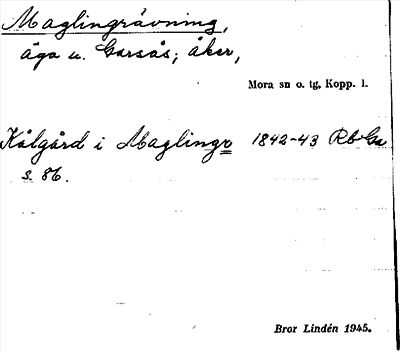 Maglingrävning,
äga u. Garsås; åker,
Mora sn o. tg, Kopp. l.
Kålgård i Maglingr 1842-43 Rb Ga
s. 86.
Bror Lindén 1945.